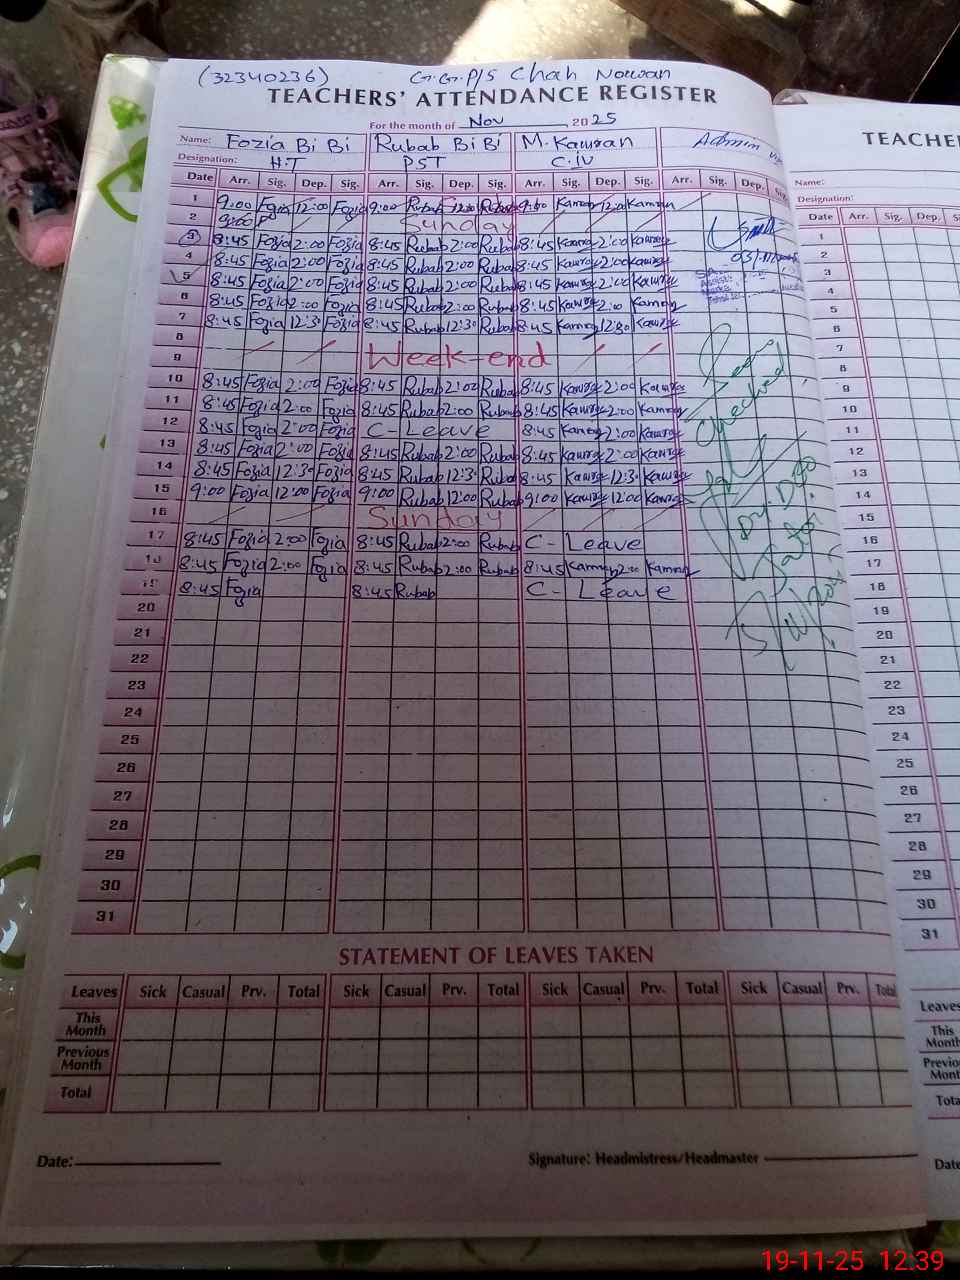 (32340236) G.G.P/S Chah Nowran
TEACHERS' ATTENDANCE REGISTER
For the month of Nov, 2025
Name: Fozia Bi Bi Rubab Bi Bi M. Kamran Admin
Designation: H.T PST C.iv
Date Arr. Sig. Dep. Sig. Arr. Sig. Dep. Sig. Arr. Sig. Dep. Sig. Arr. Sig. Dep.
1 9:00 Fozia 12:00 Fozia 9:00 Rubab 12:00 Rubab 9:00 Kamran 12:00 Kamran
2 9:00 F Sunday
3 8:45 Fozia 2:00 Fozia 8:45 Rubab 2:00 Rubab 8:45 Kamran 2:00 Kamran
4 8:45 Fozia 2:00 Fozia 8:45 Rubab 2:00 Rubab 8:45 Kamran 2:00 Kamran
5 8:45 Fozia 2:00 Fozia 8:45 Rubab 2:00 Rubab 8:45 Kamran 2:00 Kamran
6 8:45 Fozia 2:00 Fozia 8:45 Rubab 2:00 Rubab 8:45 Kamran 2:00 Kamran
7 8:45 Fozia 12:30 Fozia 8:45 Rubab 12:30 Rubab 8:45 Kamran 12:30 Kamran
8
9 Week-end
10 8:45 Fozia 2:00 Fozia 8:45 Rubab 2:00 Rubab 8:45 Kamran 2:00 Kamran
11 8:45 Fozia 2:00 Fozia 8:45 Rubab 2:00 Rubab 8:45 Kamran 2:00 Kamran
12 8:45 Fozia 2:00 Fozia C-Leave 8:45 Kamran 2:00 Kamran
13 8:45 Fozia 2:00 Fozia 8:45 Rubab 2:00 Rubab 8:45 Kamran 2:00 Kamran
14 8:45 Fozia 12:30 Fozia 8:45 Rubab 12:30 Rubab 8:45 Kamran 12:30 Kamran
15 9:00 Fozia 12:00 Fozia 9:00 Rubab 12:00 Rubab 9:00 Kamran 12:00 Kamran
16 Sunday
17 8:45 Fozia 2:00 Fozia 8:45 Rubab 2:00 Rubab C- Leave
18 8:45 Fozia 2:00 Fozia 8:45 Rubab 2:00 Rubab 8:45 Kamran 2:00 Kamran
19 8:45 Fozia 8:45 Rubab C- Leave
20
21
22
23
24
25
26
27
28
29
30
31
Seen
Checked
Dy. DEO
Jatoi
STATEMENT OF LEAVES TAKEN
Leaves Sick Casual Prv. Total Sick Casual Prv. Total Sick Casual Prv. Total Sick Casual Prv. Total
This Month
Previous Month
Total
Date: Signature: Headmistress/Headmaster
TEACHE
Name:
Designation:
Date Arr. Sig. Dep.
1
2
3
4
5
6
7
8
9
10
11
12
13
14
15
16
17
18
19
20
21
22
23
24
25
26
27
28
29
30
31
Leaves
This
Month
Previo
Mont
Tota
Date
19-11-25 12:39